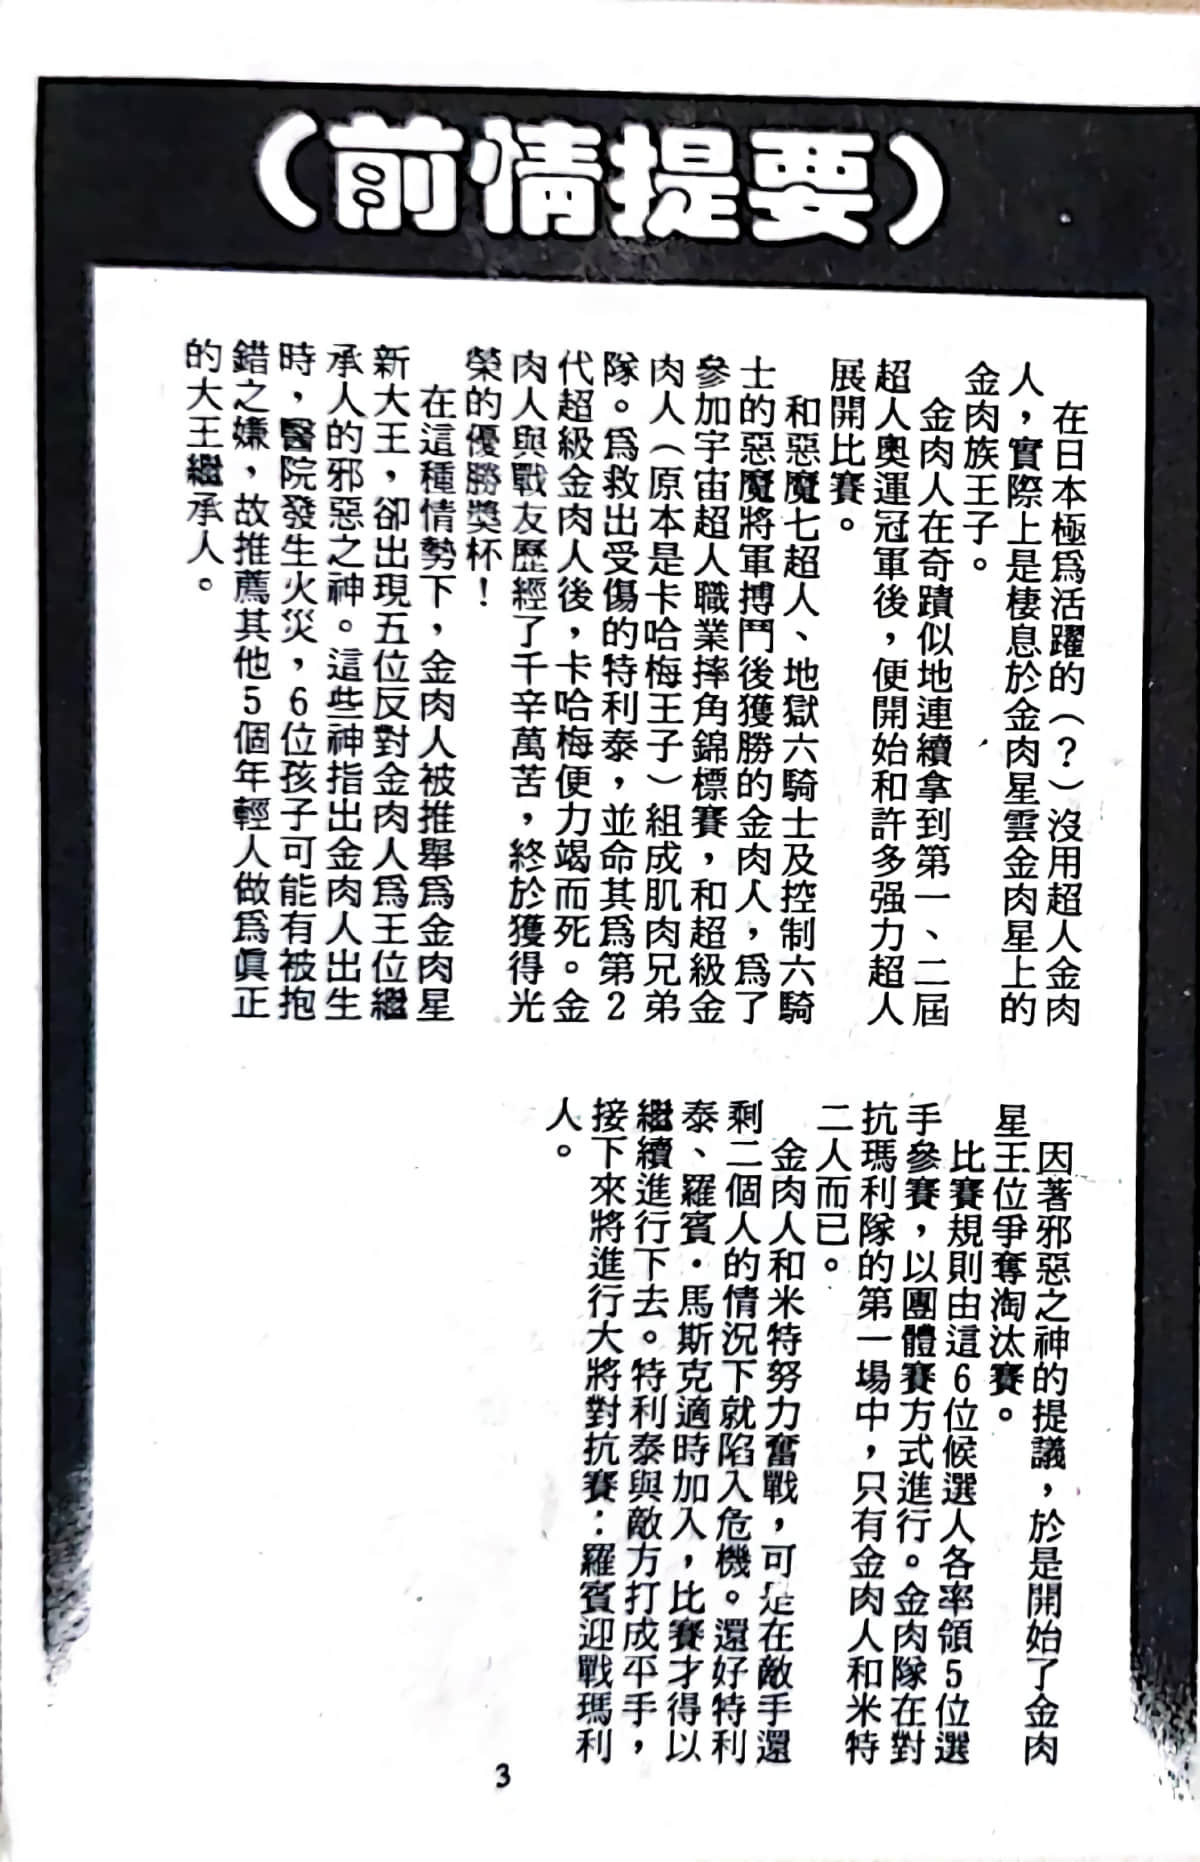 （前情提要）
在日本極爲活躍的（？）沒用超人金肉
人，實際上是棲息於金肉星雲金肉星上的
金肉族王子。
金肉人在奇蹟似地連續拿到第一、二屆
超人奧運冠軍後，便開始和許多强力超人
展開比賽。
和惡魔七超人、地獄六騎士及控制六騎
士的惡魔將軍搏鬥後獲勝的金肉人，爲了
參加宇宙超人職業摔角錦標賽，和超級金
肉人（原本是卡哈梅王子）組成肌肉兄弟
隊。爲救出受傷的特利泰，並命其爲第2
代超級金肉人後，卡哈梅便力竭而死。金
肉人與戰友歷經了千辛萬苦，終於獲得光
榮的優勝獎杯！
在這種情勢下，金肉人被推舉爲金肉星
新大王，卻出現五位反對金肉人爲王位繼
承人的邪惡之神。這些神指出金肉人出生
時，醫院發生火災，6位孩子可能有被抱
錯之嫌，故推薦其他5個年輕人做爲眞正
的大王繼承人。
因著邪惡之神的提議，於是開始了金肉
星王位爭奪淘汰賽。
比賽規則由這6位候選人各率領5位選
手參賽，以團體賽方式進行。金肉隊在對
抗瑪利隊的第一場中，只有金肉人和米特
二人而已。
金肉人和米特努力奮戰，可是在敵手還
剩二個人的情況下就陷入危機。還好特利
泰、羅賓・馬斯克適時加入，比賽才得以
繼續進行下去。特利泰與敵方打成平手，
接下來將進行大將對抗賽：羅賓迎戰瑪利
人。
3